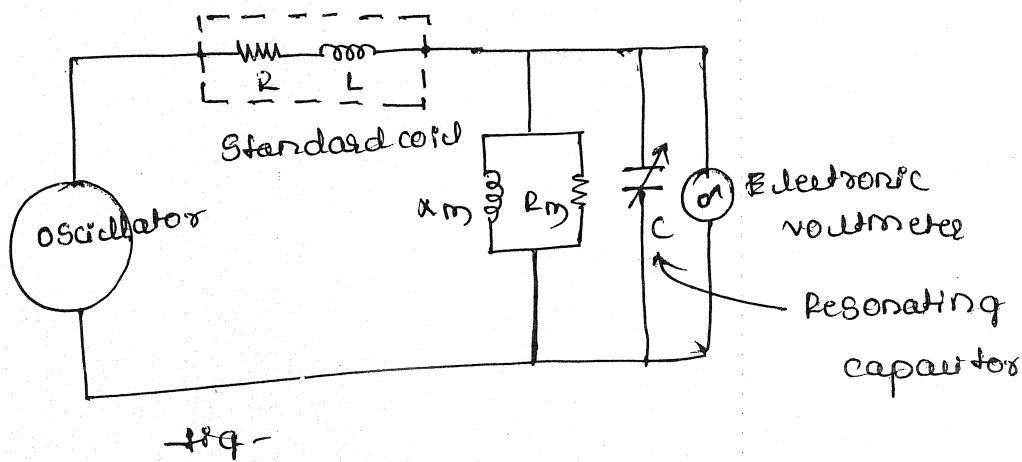 R L
Standard coil
Oscillator
Xm Rm
C
Electronic
voltmeter
Resonating
capacitor
fig-